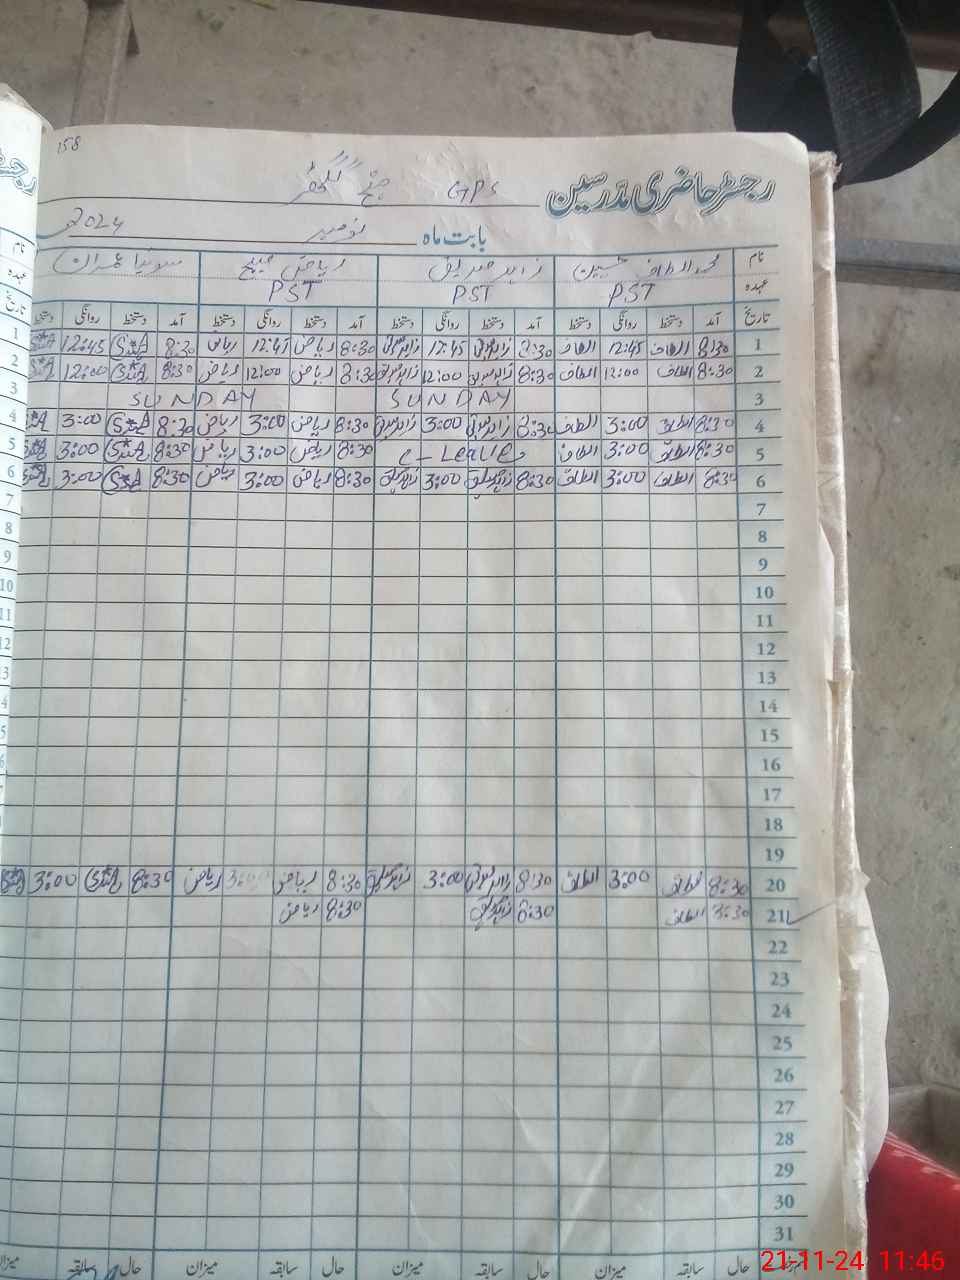 158
رجسٹر حاضری مدرسین GPS
بابت ماہ نومبر 2024
نام محمد الطاف حسین زاہد صدیق ریاض مسیح سونیا عمران
عہدہ PST PST PST
تاریخ آمد دستخط روانگی دستخط آمد دستخط روانگی دستخط آمد دستخط روانگی دستخط آمد دستخط روانگی دستخط
1 8:30 الطاف 12:45 الطاف 8:30 زاہد صدیق 12:45 زاہد صدیق 8:30 ریاض 12:45 ریاض 8:30 12:45
2 8:30 الطاف 12:00 الطاف 8:30 زاہد صدیق 12:00 زاہد صدیق 8:30 ریاض 12:00 ریاض 8:30 12:00
3 SUNDAY SUNDAY
4 8:30 الطاف 3:00 الطاف 8:30 زاہد صدیق 3:00 زاہد صدیق 8:30 ریاض 3:00 ریاض 8:30 3:00
5 8:30 الطاف 3:00 الطاف C-Leave 8:30 ریاض 3:00 ریاض 8:30 3:00
6 8:30 الطاف 3:00 الطاف 8:30 زاہد صدیق 3:00 زاہد صدیق 8:30 ریاض 3:00 ریاض 8:30 3:00
7
8
9
10
11
12
13
14
15
16
17
18
19
20 8:30 الطاف 3:00 الطاف 8:30 زاہد صدیق 3:00 زاہد صدیق 8:30 ریاض 3:00 ریاض 8:30 3:00
21 8:30 الطاف 8:30 زاہد صدیق 8:30 ریاض
22
23
24
25
26
27
28
29
30
31
میزان حال سابقہ میزان حال سابقہ میزان حال سابقہ میزان حال سابقہ میزان
21-11-24 11:46